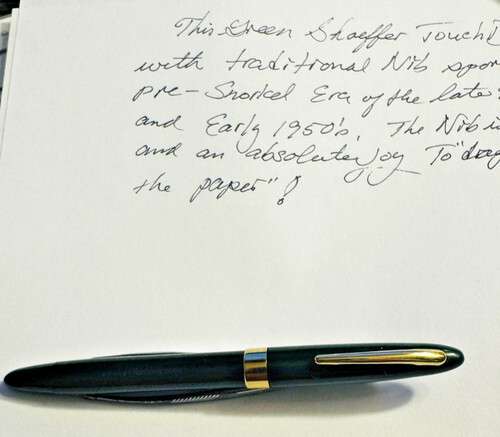 This Green Shaeffer Touch
with traditional Nib spor
pre-Snorkel Era of the late
and Early 1950's. The Nib i
and an absolute joy To "drag
the paper"!